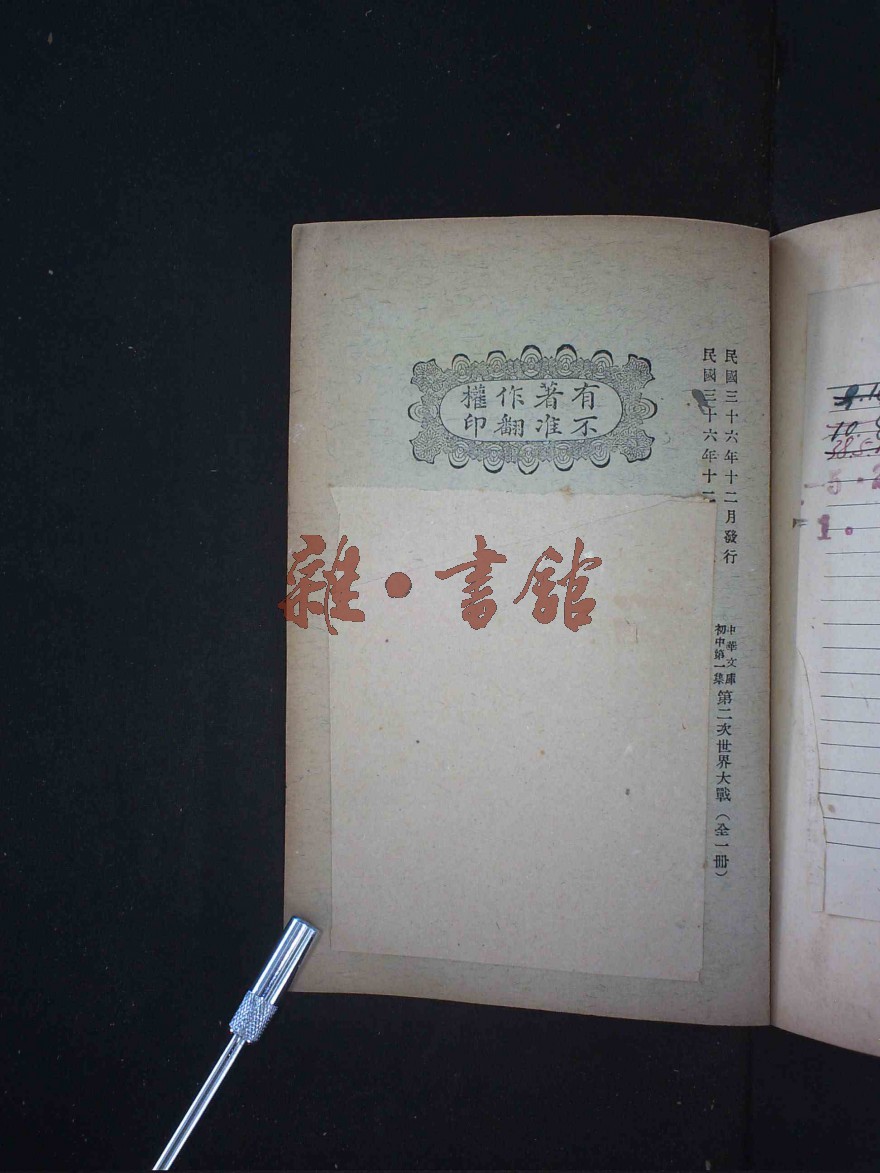 民國三十六年十二月發行
民國三十六年十二
中華文庫
初中第一集
第二次世界大戰（全一冊）
有著作權
不准翻印
雜·書館
10.
5.2
1.